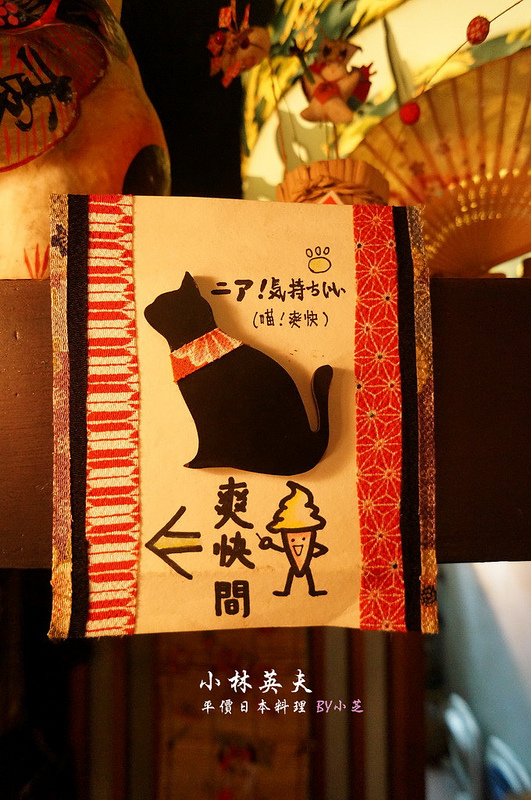 ニア!気持ちいい
(喵!爽快)
爽快間
小林英夫
平價日本料理 BY小芝